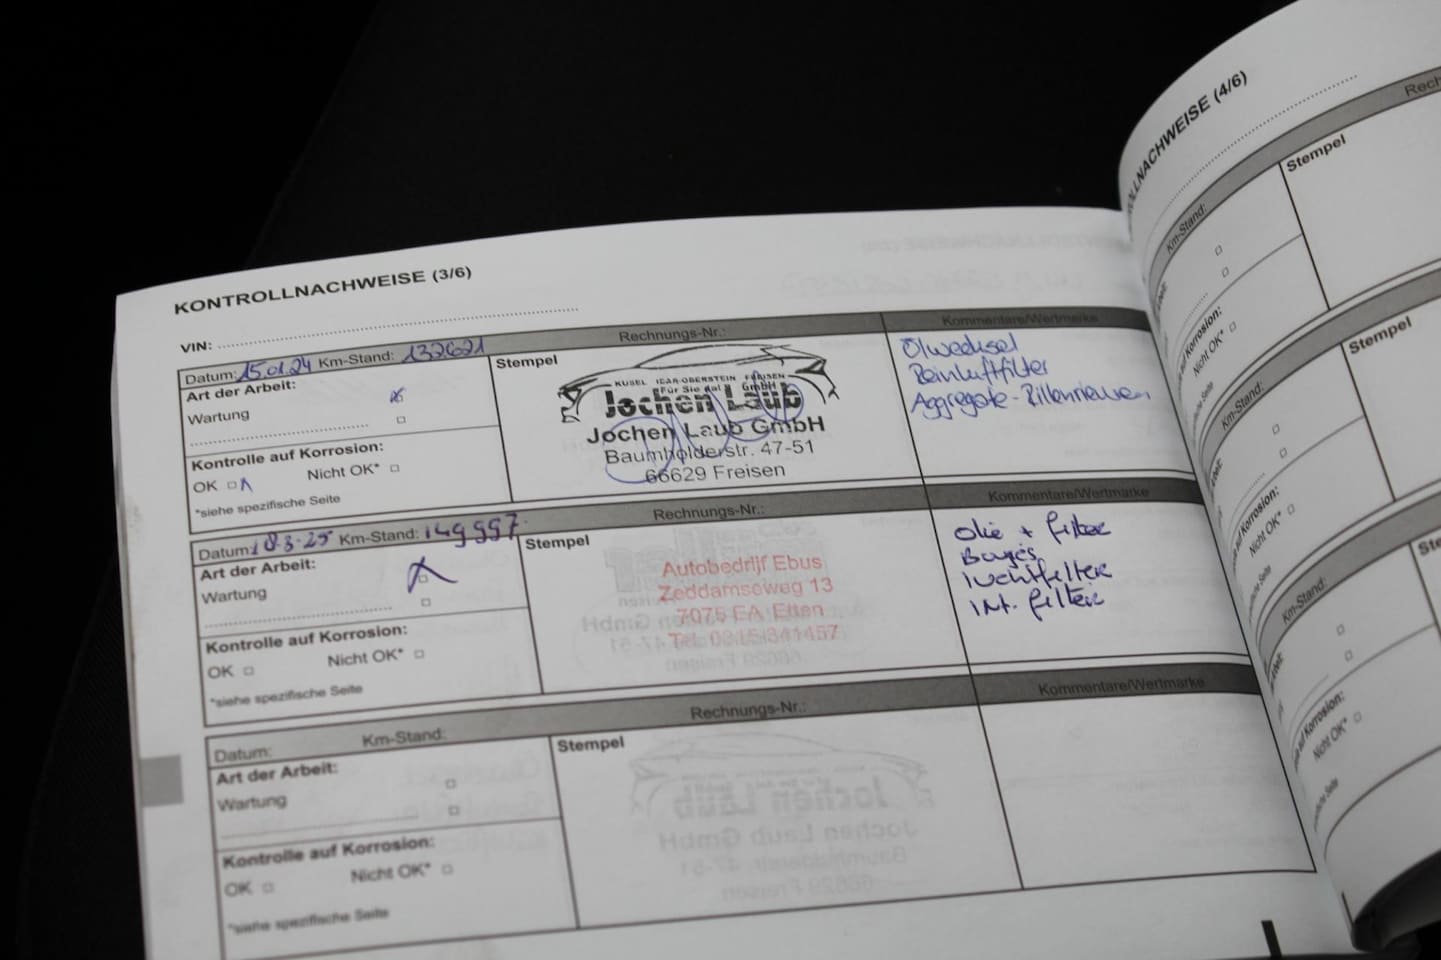 KONTROLLNACHWEISE (3/6)
VIN:
Datum: 15.01.24 Km-Stand: 132621
Rechnungs-Nr.:
Kommentare/Wertmarke
Art der Arbeit:
Wartung
Kontrolle auf Korrosion:
OK Nicht OK*
*siehe spezifische Seite
Stempel
KUSEL IDAR-OBERSTEIN FREISEN
Für Sie da! GmbH
Jochen Laub
Jochen Laub GmbH
Baumholderstr. 47-51
66629 Freisen
Ölwechsel
Reinluftfilter
Aggregate-Rillenriemen
Datum: 18-3-25 Km-Stand: 149997
Rechnungs-Nr.:
Kommentare/Wertmarke
Art der Arbeit:
Wartung
Kontrolle auf Korrosion:
OK Nicht OK*
*siehe spezifische Seite
Stempel
Autobedrijf Ebus
Zeddamseweg 13
7075 EA Etten
Tel. 0315-341457
Olie + filter
Bougies
luchtfilter
Int. filter
Datum: Km-Stand:
Rechnungs-Nr.:
Kommentare/Wertmarke
Art der Arbeit:
Wartung
Kontrolle auf Korrosion:
OK Nicht OK*
*siehe spezifische Seite
Stempel
KONTROLLNACHWEISE (4/6)
Km-Stand:
Stempel
Nicht OK*
Km-Stand:
Stempel
Nicht OK*
Km-Stand:
Nicht OK*